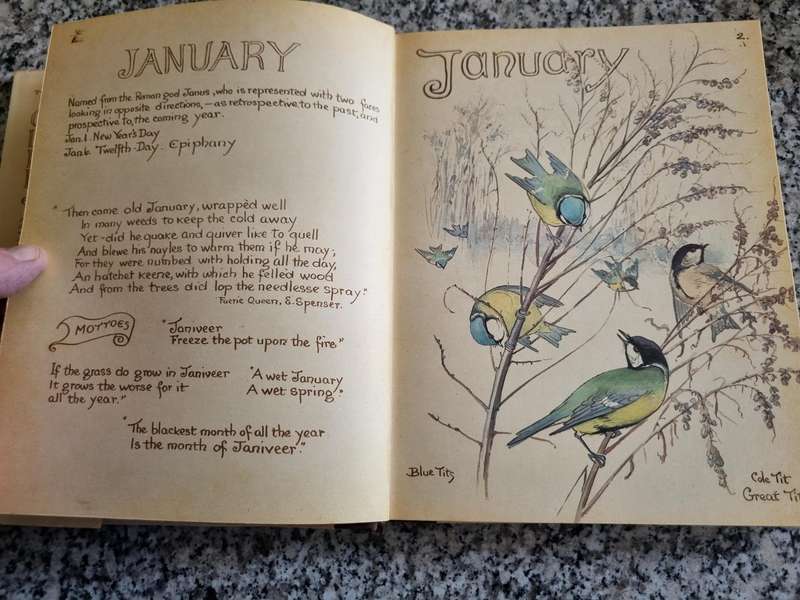 JANUARY
Named from the Roman god Janus, who is represented with two faces
looking in opposite directions, – as retrospective to the past, and
prospective to, the coming year.
Jan. 1. New Year's Day
Jan. 6. Twelfth-Day. Epiphany
"Then came old January, wrappèd well
In many weeds to keep the cold away
Yet did he quake and quiver like to quell
And blowe his nayles to warm them if he may;
For they were numbed with holding all the day,
An hatchet keene, with which he felled wood
And from the trees did lop the needlesse spray."
Faerie Queen, E. Spenser.
MOTTOES
"Janiveer
Freeze the pot upon the fire"
If the grass do grow in Janiveer
It grows the worse for it
all the year."
"A wet January
A wet Spring"
"The blackest month of all the year
Is the month of Janiveer."
2.
January
Blue Tits
Cole Tit
Great Tit